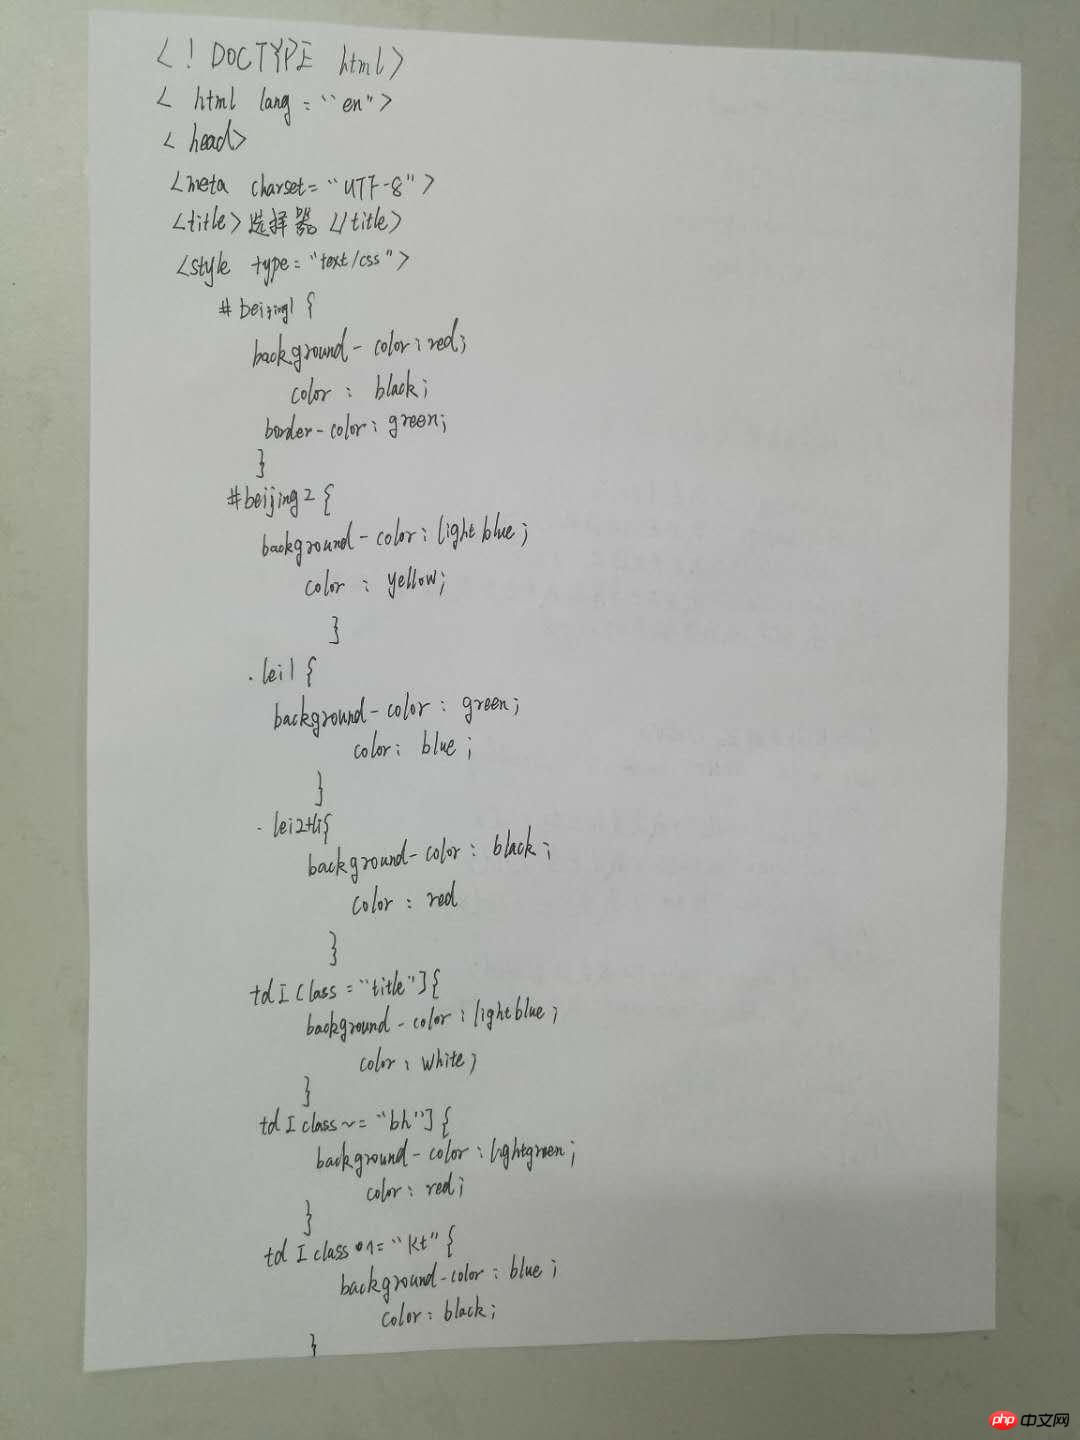 <! DOCTYPE html>
< html lang = "en">
< head>
<meta charset="UTF-8">
<title>选择器</title>
<style type="text/css">
#beijing1 {
background-color:red;
color : black;
border-color: green;
}
#beijing2 {
background-color: lightblue;
color : yellow;
}
.lei1 {
background-color: green;
color: blue;
}
.lei2+li{
background-color: black;
color : red
}
td[class="title"]{
background-color: lightblue;
color: white;
}
td[class~="bh"]{
background-color: lightgreen;
color: red;
}
td [class^="kt" {
background-color: blue;
color: black;
}
php 中文网